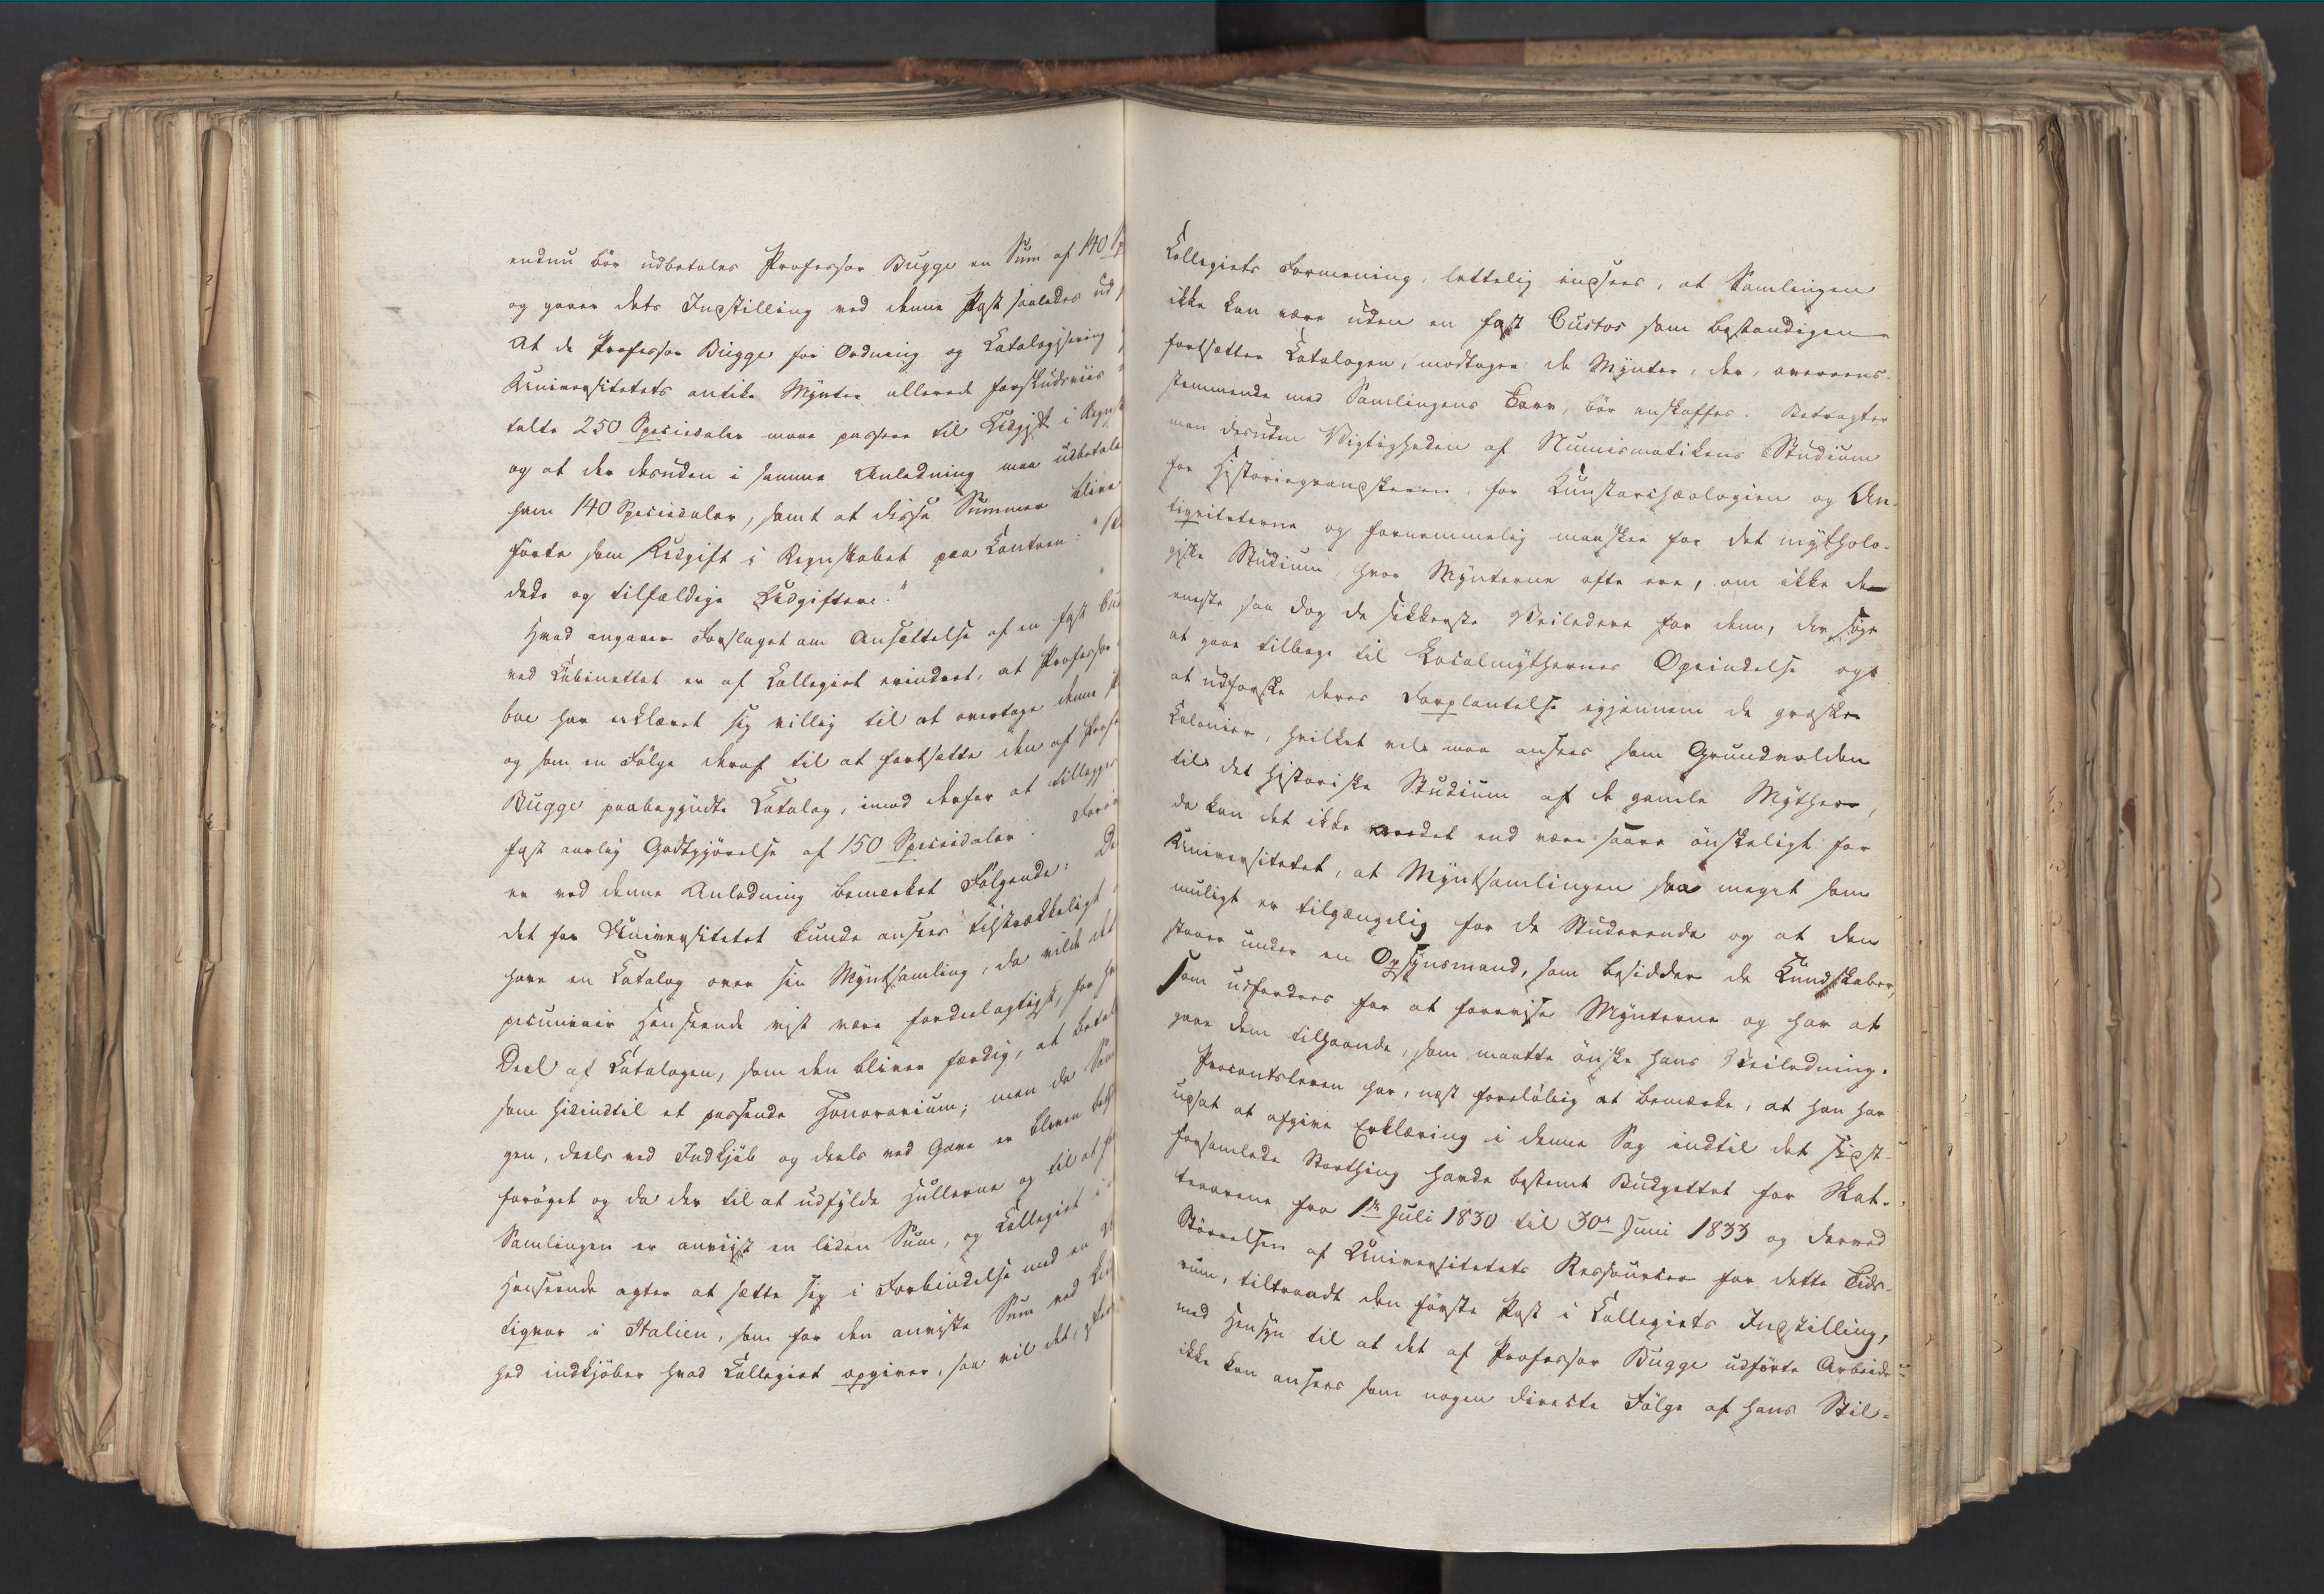 endnu bör udbetales Professor Bugge en Sum af 140 Sp
og gaaer dets Indstilling ved denne Post saaledes ud,
At de Professor Bugge for Ordning og Catalogisering
Universitetets antike Mynter allerede forskudsviis
talte 250 Speciedaler maae passere til Udgift i Regns
og at der desuden i samme Anledning maa udbetale
ham 140 Speciedaler, samt at disse Summer blive
förte som Udgift i Regnskabet paa Contoen: "
dede og tilfældige Udgifter."
Hvad angaaer Forslaget om Ansættelse af en fast Cus
ved Cabinettet er af Collegiet erindret, at Professor
boe har erklæret sig villig til at overtage denne
og som en Fölge deraf til at fortsætte den af Profes
Bugge paabegyndte Catalog, imod derfor at tillægges
fast aarlig Godtgjörelse af 150 Speciedaler.
er ved denne Anledning bemærket Fölgende:
det for Universitetet kunde ansees tilstrækkeligt
have en Catalog over sin Myntsamling, da vilde det
pecuniair Henseende vist være fordeelagtigst, for h
Deel af Catalogen, som den bliver færdig, at betal
som hidindtil et passende Honorarium; men da Sam
gen, deels ved Indkjöb og deels ved Gave er bleven
foröget og da der til at udfylde Hullerne og til at
Samlingen er anviist en liden Sum, og Collegiet i
Henseende agter at sætte sig i Forbindelse med en
tiqvar i Italien, som for den anviste Sum ved
hed indkjöber hvad Collegiet opgiver, saa vil det,
Collegiets Formening, lettelig indsees, at Samlingen
ikke kan være uden en fast Custos som bestandigen
fortsætter Catalogen, modtager de Mynter, der, overeens-
stemmende med Samlingens Tarv, bör anskaffes. Betragter
man desuden Vigtigheden af Numismatikens Studium
for Historiegranskeren, for Kunstarchæologien og An-
tiqviteterne og fornemmelig maaskee for det mytholo-
giske Studium hvor Mynterne ofte ere, om ikke de
eneste saa dog de sikkerste Veiledere for dem, der söge
at gaae tilbage til Localmythernes Oprindelse og
at udforske deres Forplantelse igjennem de græske
Colonier, hvilket vel maa ansees som Grundvolden
til det historiske Studium af de gamle Myther,
da kan det ikke andet end være saare önskeligt for
Universitetet, at Myntsamlingen saa meget som
muligt er tilgængelig for de Studerende og at den
staaer under en Opsynsmand, som besidder de Kundskaber,
som udfordres for at forevise Mynterne og har at
gaae dem tilhaande, som maatte önske hans Veiledning.
Procantsleren har, næst foreløbig at bemærke, at han har
udsat at afgive Erklæring i denne Sag indtil det sidst-
forsamlede Storthing havde bestemt Budgettet for Skat-
teaarene fra 1ste Juli 1830 til 30te Juni 1833 og derved
Störrelsen af Universitetets Ressourcer for dette Tids-
rum, tiltraadt den förste Post i Collegiets Indstilling,
med Hensyn til at det af Professor Bugge udförte Arbeide
ikke kan ansees som nogen directe Fölge af hans Stil-